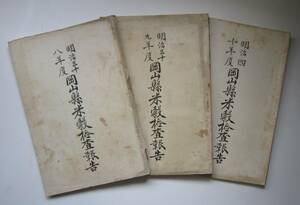 明治三十
八年度
岡山縣米穀檢査報告
明治三十
九年度
岡山縣米穀檢査報告
明治四
十年度
岡山縣米穀檢査報告